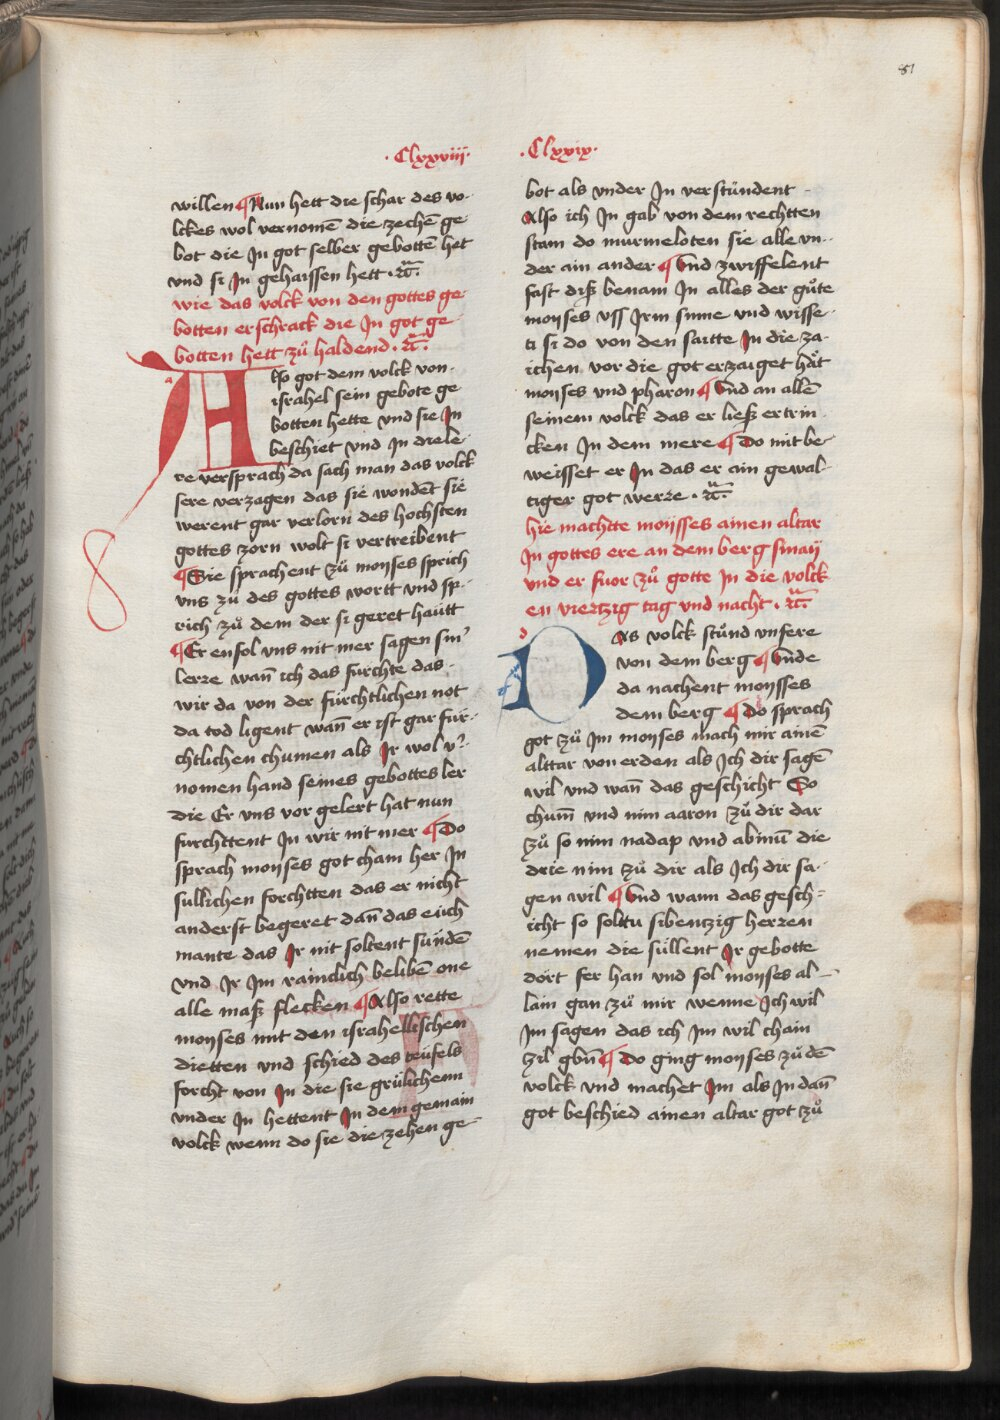 81
·Clxxviii·
willen ¶ Nun hett die schar des vo-
lckes wol vernomē die zechē ge
bot die Jn got selber gebottē het
vnd si Jn gehaissen hett · ꝛc̄
wie das volck von den gottes ge
botten erschrack die Jn got ge
botten hett zů haldend · ꝛc̄
Also got dem volck von
israhel sein gebote ge
botten hette vnd sie Jn
beschiet vnd Jn die le
re versprach da sach man das volck
sere verzagen das sie wondēt sie
werent gar verlorn des hochsten
gottes zorn wolt si vertreibent
¶ Sie sprachent zů moyses sprich
vns zů des gottes wortt vnd sp-
rich zů dem der si geret hautt
¶ Er en sol vns nit mer sagen sin
lerre wañ ich das furchte das
wir da von der fürchtlichen not
da tod ligent wañ er ist gar für-
chtlichen chumen als Jr wol v
nomen hand seines gebottes ler
die Er vns vor gelert hat nun
furchttent Jn wir nit mer ¶ Do
sprach moyses got cham her Jn
sullichen forchtten das er nicht
anderst begeret dañ das eüch
mante das Jr nit soltent sündē
vnd Jr Jm rainclich belibē one
alle masz flecken ¶ Also rette
moyses mit den israhellischen
dietten vnd schied des teüfels
forcht von Jn die sie grülichenn
vnder Jn hettent Jn dem gemain
volck wenn do sie die zehen ge
·Clxxix·
bot als vnder Jn verstündent
Also ich Jn gab von dem rechtten
stam do murmeloten sie alle vn-
der ain ander ¶ Vnd zwiffelent
fast disz benam Jn alles der gůte
moyses vss Jrm sinne vnd wisse
ti si do von den saitte Jn die za-
ichen vor die got erzaiget hăt
moyses vnd pharon ¶ Vnd an allē
seinem volck das er liesz ertrin
cken Jn dem mere ¶ Do mit be
weisset er Jn das er ain gewal-
tiger got werre · ꝛc̄
hie machtte moysses ainen altar
Jn gottes ere an dem berg sinaÿ
vnd er fuor zů gotte Jn die volck
en viertzig tag vnd nacht · ꝛc̄
Das volck stůnd vnfere
von dem berg ¶ Vnde
da nachent moysses
dem berg ¶ Do sprach
got zů Jm moyses mach mir ainē
alttar von erden als Jch dir sagē
wil vnd wañ das geschicht So
chum̄ vnd nim aaron zů dir dar
zů so nim nadap vnd abinū die
drie nim zů dir als Jch dir sa-
gen wil ¶ Vnd wann das gesch-
icht so solttu sibentzig herren
nemen die süllent Jr gebotte
dort fer han vnd sol moyses al-
lain gan zů mir wenne Jch wil
Jm sagen das ich Jm wil chain
zil gbñ ¶ Do ging moyses zů dē
volck vnd machet Jm als Jn dañ
got beschied ainen altar got tzů